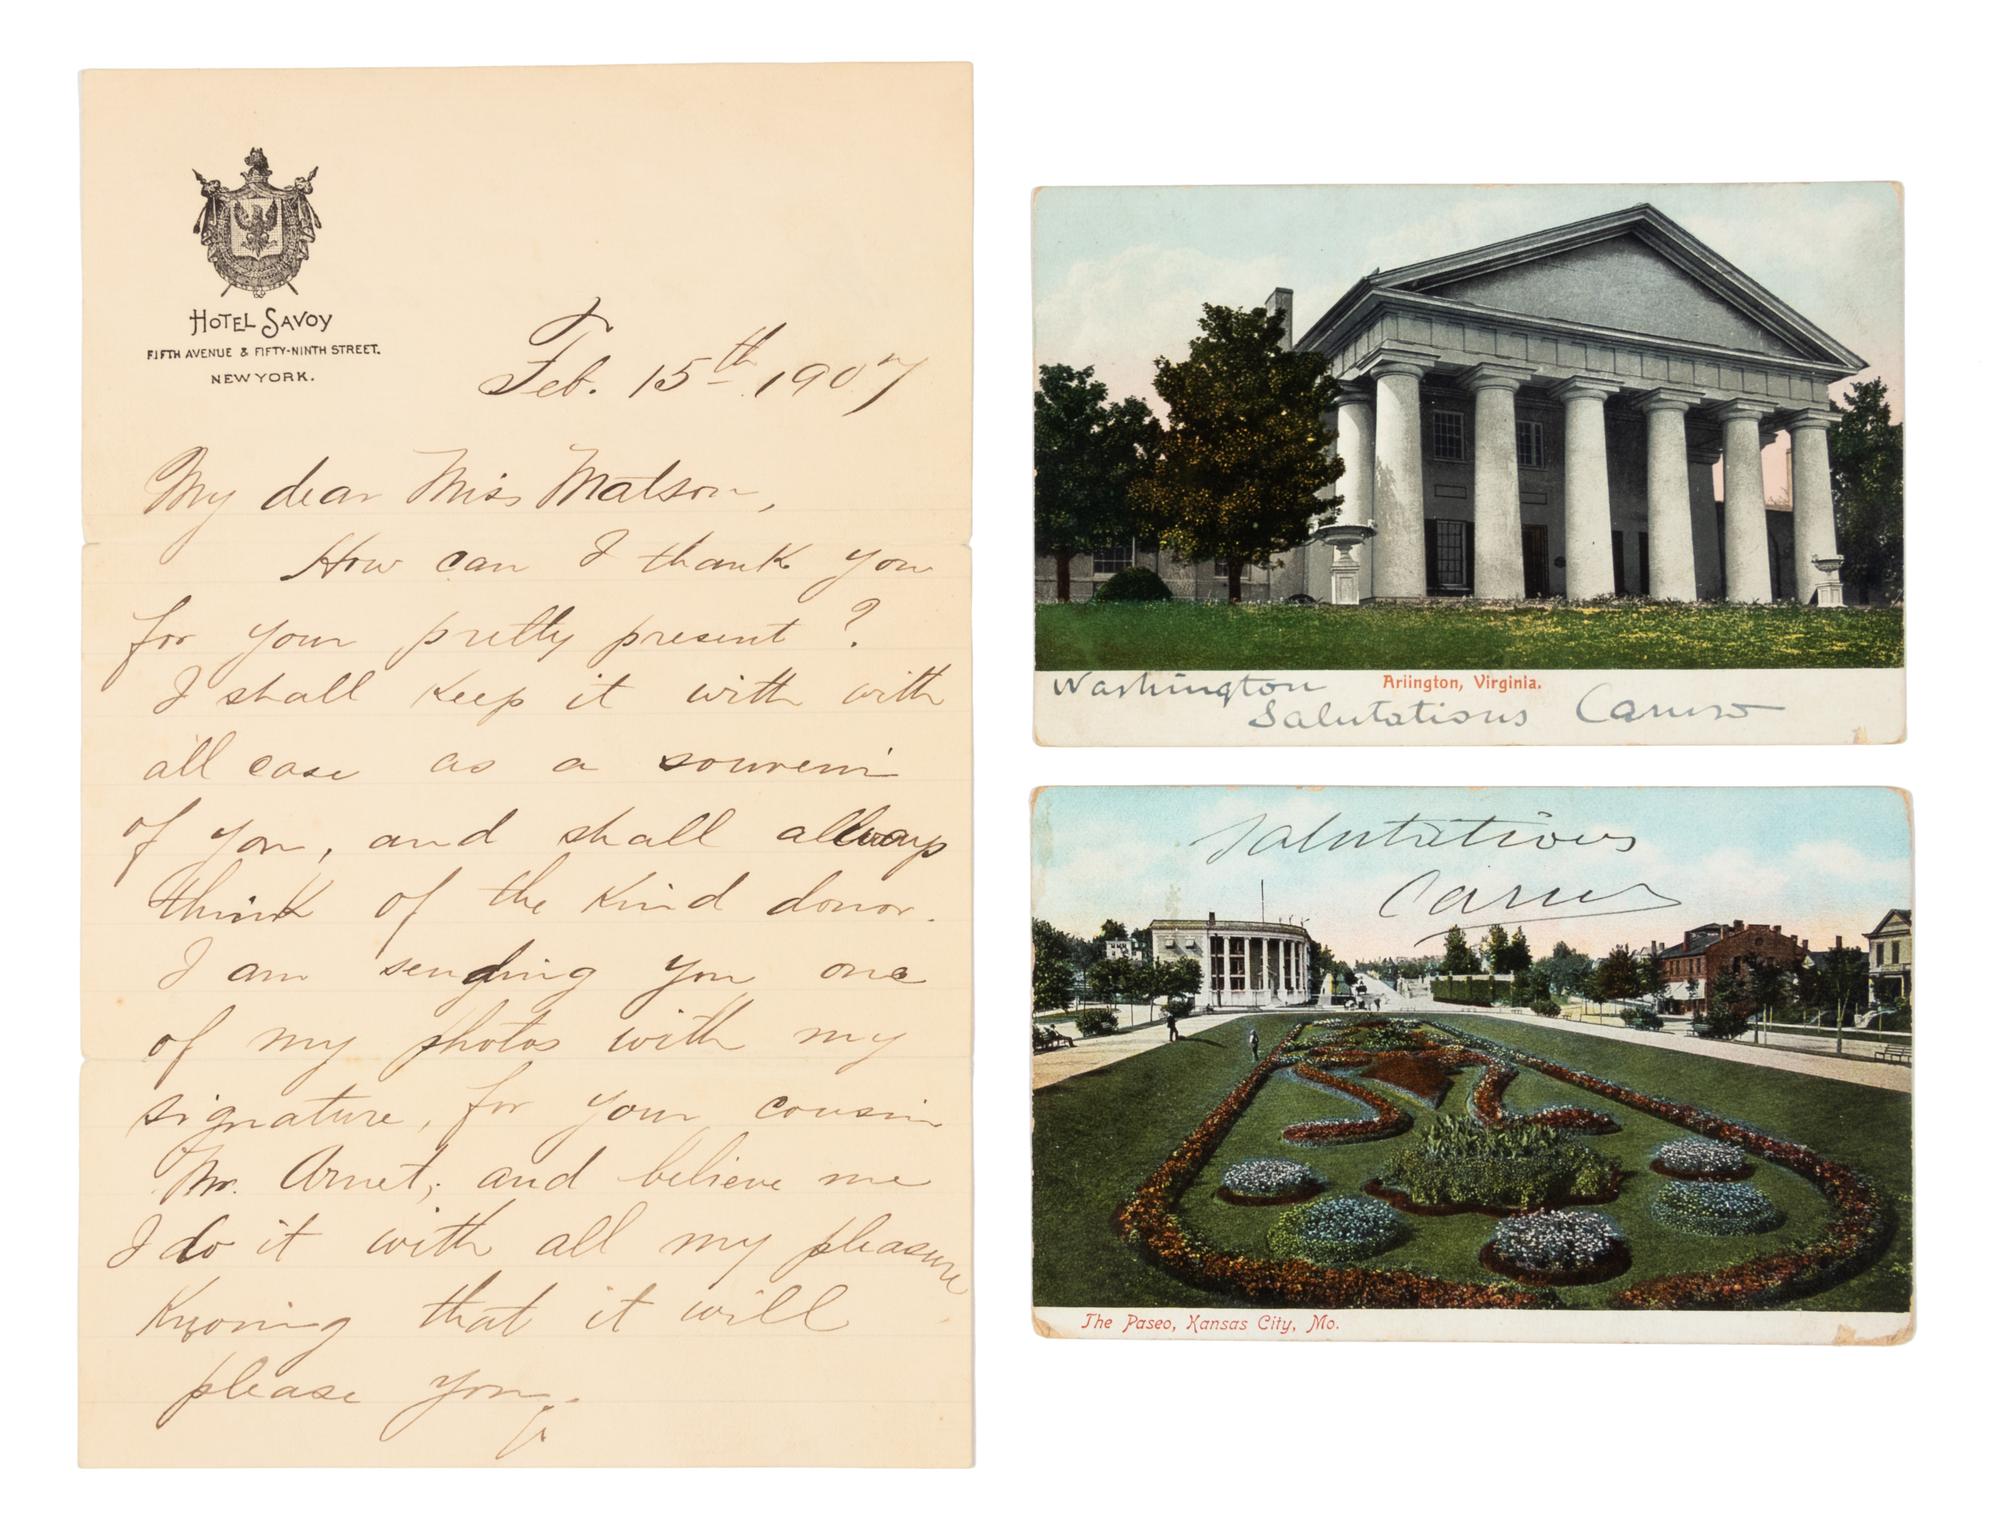 HOTEL SAVOY
FIFTH AVENUE & FIFTY-NINTH STREET.
NEW YORK.
Feb. 15th 1907
My dear Miss Matson,
How can I thank you
for your pretty present?
I shall keep it with with
all case as a souvenir
of you, and shall allways
think of the kind donor.
I am sending you one
of my photos with my
signature, for your cousin
Mr. Arnet; and believe me
I do it with all my pleasure
Knwoing that it will
please you.
Arlington, Virginia.
Washington
Salutations Caruso
Salutations
Caruso
The Paseo, Kansas City, Mo.